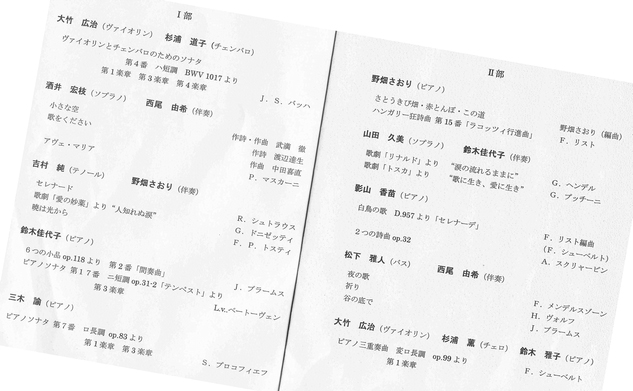 Ⅰ部
大竹 広治（ヴァイオリン） 杉浦 道子（チェンバロ）
ヴァイオリンとチェンバロのためのソナタ
第４番 ハ短調 BWV 1017 より
第１楽章 第３楽章 第４楽章
Ｊ．Ｓ．バッハ
酒井 宏枝（ソプラノ） 西尾 由希（伴奏）
小さな空
作詩・作曲 武満 徹
歌をください
作詩 渡辺達生
作曲 中田喜直
アヴェ・マリア
Ｐ．マスカーニ
吉村 純（テノール） 野畑さおり（伴奏）
セレナード
Ｒ．シュトラウス
歌劇「愛の妙薬」より “人知れぬ涙”
Ｇ．ドニゼッティ
暁は光から
Ｆ．Ｐ．トスティ
鈴木佳代子（ピアノ）
６つの小品 op.118 より 第２番「間奏曲」
Ｊ．ブラームス
ピアノソナタ 第１７番 ニ短調 op.31-2「テンペスト」より
第３楽章
L.v.ベートーヴェン
三木 諭（ピアノ）
ピアノソナタ 第７番 ロ長調 op.83 より
第１楽章 第３楽章
Ｓ．プロコフィエフ
Ⅱ部
野畑さおり（ピアノ）
さとうきび畑・赤とんぼ・この道
野畑さおり（編曲）
ハンガリー狂詩曲 第 15 番「ラコッツィ行進曲」
Ｆ．リスト
山田 久美（ソプラノ） 鈴木佳代子（伴奏）
歌劇「リナルド」より “涙の流れるままに”
Ｇ．ヘンデル
歌劇「トスカ」より “歌に生き、愛に生き”
Ｇ．プッチーニ
影山 香苗（ピアノ）
白鳥の歌 D.957 より「セレナーデ」
Ｆ．リスト編曲
（Ｆ．シューベルト）
２つの詩曲 op.32
Ａ．スクリャービン
松下 雅人（バス） 西尾 由希（伴奏）
夜の歌
Ｆ．メンデルスゾーン
祈り
Ｈ．ヴォルフ
谷の底で
Ｊ．ブラームス
大竹 広治（ヴァイオリン） 杉浦 薫（チェロ） 鈴木 雅子（ピアノ）
ピアノ三重奏曲 変ロ長調 op.99 より
第１楽章
Ｆ．シューベルト